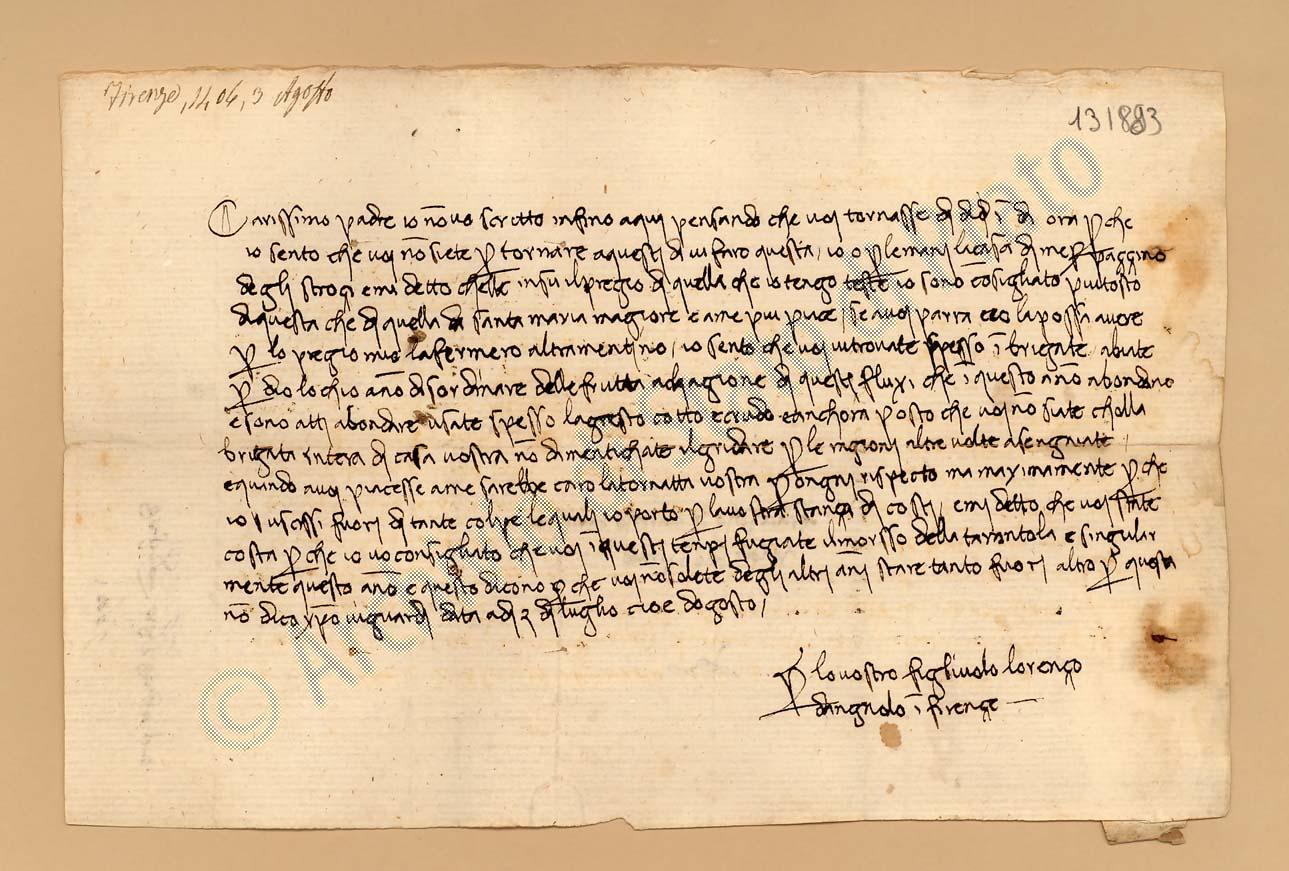 Firenze, 1406, 3 Agosto
131883
Carissimo padre io nō vo scritto infino aqui pensando che voi tornasse di dì ī dì ora p che
io sento che voi nō siete p tornare aquesti di vi faro questa / io o p le mani la casa di
degli strozi e mi detto chella insu il pregio di quella che io tengo teste io sono cōsigliato piu tosto
di questa che di quella di santa maria magiore e a me piu piace / se a voi parra e io la possa avere
p lo pregio mio la fermero altramenti no / io sento che voi vi trovate spesso ī brigate abiate
p dio lochio a nō disordinare delle frutta a chagione di questi fluxi che ī questo āno abondāno
e sono atti abondare usate spesso lagresto cotto e crudo e anchora posto che voi nō siate cholla
brigata intera di casa vostra nō dimentichate il gridare p le ragioni altre volte asengniate /
e quando a voi piacesse a me sarebbe caro la tornatta vostra p ongni rispecto ma maximamente p che
io uscissi fuori di tante colpe le quali io porto p la vostra stanza di costi / e mi detto che voi state
costa p che io vo consigliato che voi ī questi tenpi fugiate il morsso della tarantola e singular
mente questo āno e questo dicono p che voi nō solete degli altri āni stare tanto fuori altro p questa
nō dico xpo vi guardi data a di 3 di luglio cioe dogosto /
p lo vostro figlivolo lorenzo
dangnolo ī firenze
© Arc